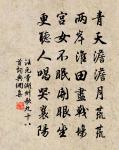 青天澹澹月荒荒
兩岸淮田盡戰場
宮女不眠開眼坐
更聽人唱哭襄陽
汪元量湖州歌九十八
首詞典網